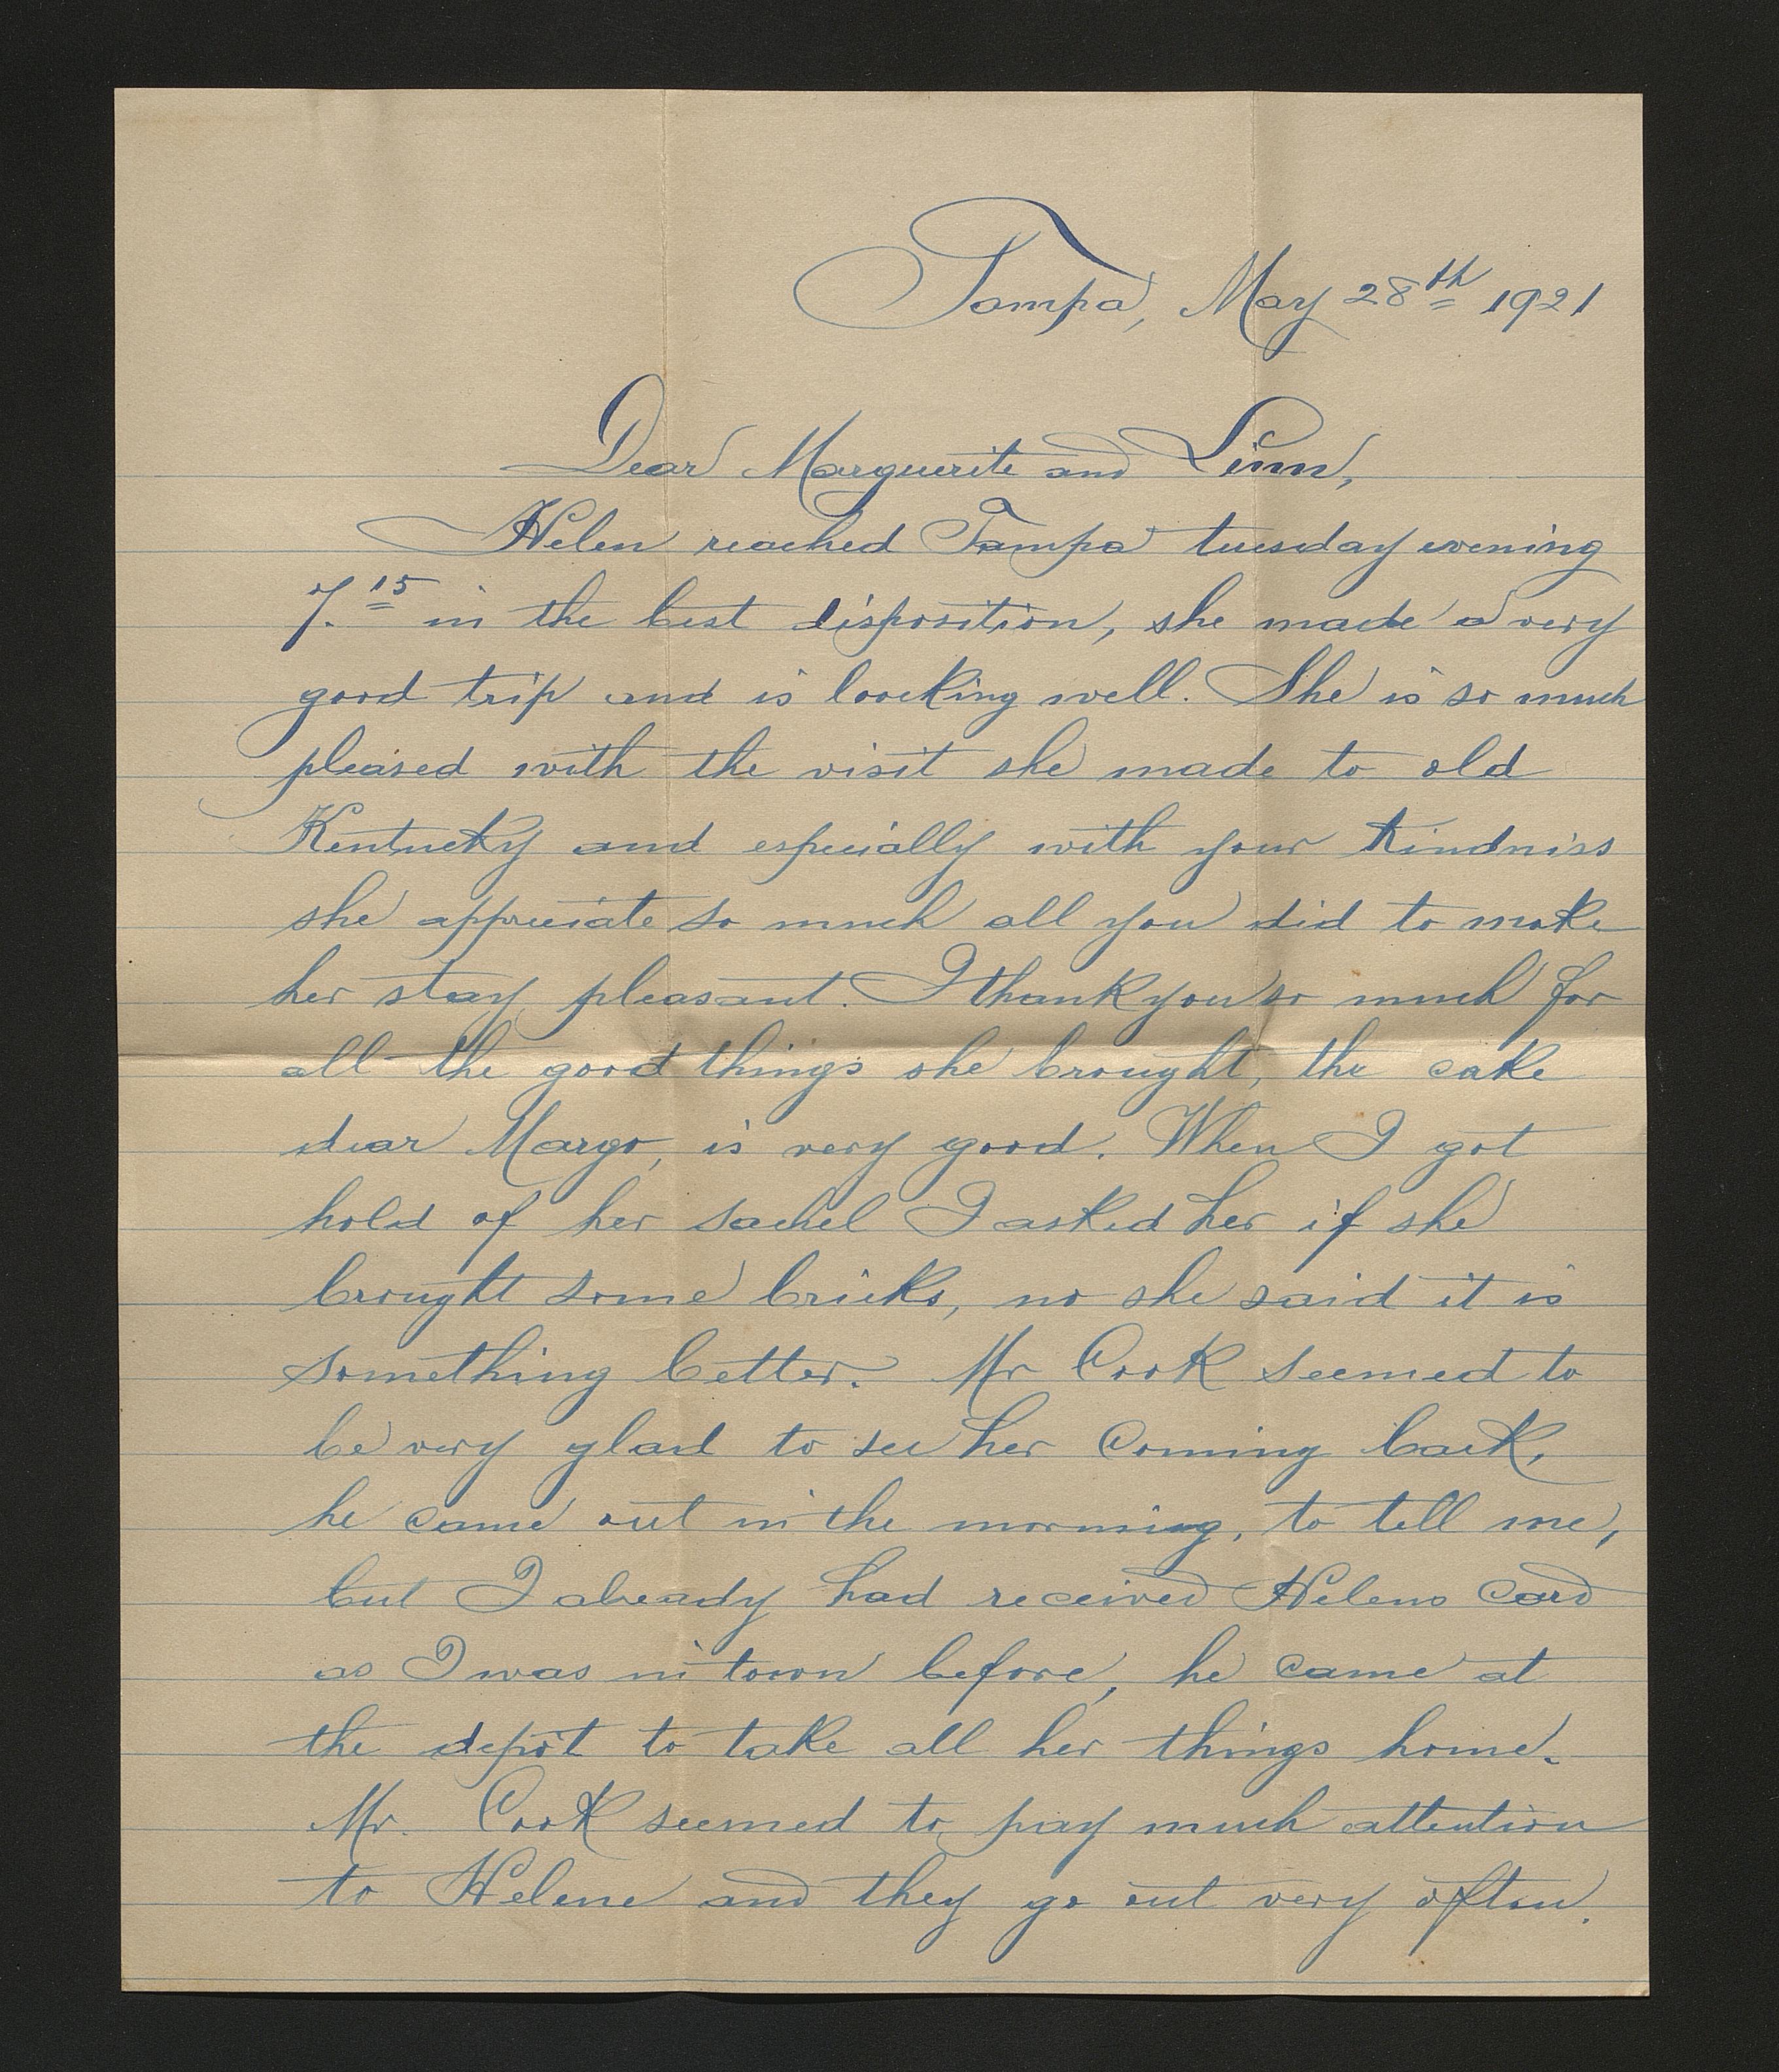 Tampa, May 28th 1921
Dear Marguerite and Linn,
Helen reached Tampa tuesday evening
7.15 in the best disposition, she made a very
good trip and is loocking well. She is so much
pleased with the visit she made to old
Kentucky and especially with your kindniss
she appreciate so much all you did to make
her stay pleasant. I thank you so much for
all the good things she brought, the cake
dear Margo, is very good. When I got
hold of her sachel I asked her if she
brought some bricks, no she said it is
something better. Mr Cook seemed to
be very glad to see her coming back,
he came out in the morning, to tell me,
but I already had received Helens card
as I was in town before, he came at
the depot to take all her things home.
Mr. Cook seemed to pay much attention
to Helene and they go out very often.